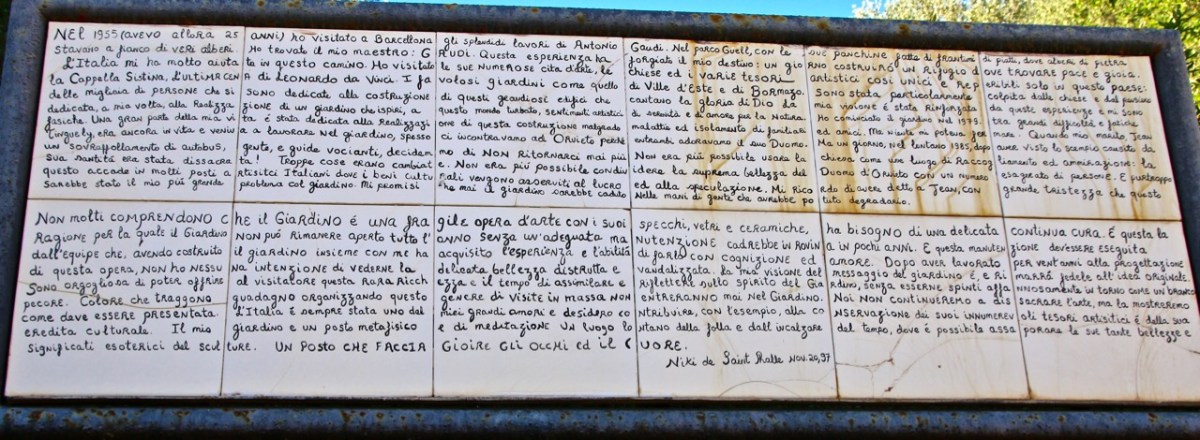 NEL 1955 (avevo allora 25 anni) ho visitato a Barcellona gli splendidi lavori di Antonio Gaudi. Nel parco Guell, con le sue panchine fatte di frantumi di piatti, dove alberi di pietra
stavano a fianco di veri alberi. Ho trovato il mio maestro: Gaudi. Questa esperienza ha forgiato il mio destino: un giorno costruirò un Rifugio dove trovare pace e gioia.
L'Italia mi ha molto aiutata in questo camino. Ho visitato le sue numerose cita d'arte, le chiese ed i varie tesori artistici cosi unici e reperibili solo in questo paese:
la Cappella Sistina, L'ultima cena di Leonardo da Vinci. I favolosi giardini come quello di Ville d'Este e di Bormazo. Sono stata particolarmente colpita dalle chiese e dal pensiero
delle migliaia di persone che si sono dedicate alla costruzione di questi grandiosi edifici che cantano la gloria di Dio. La mia visione è stata rinforzata da queste esperienze e mi sono
dedicata, a mia volta, alla Realizzazione di un giardino che ispiri, a questo mondo turbato, sentimenti artistici di serenità e d'amore per la Natura. Ho cominciato il giardino nel 1979. tra grandi difficoltà e fatiche
fasiche. Una gran parte della mia vita è stata dedicata alla Realizzazione di questa costruzione malgrado malattie ed isolamento di familiari ed amici. Ma niente mi poteva fermare. Quando mio marito Jean
Tinguely, era ancora in vita e veniva a lavorare nel giardino, spesso ci incontravano ad Orvieto perchè entrambi adoravamo il suo Duomo. Ma un giorno, nel lontano 1985, dopo aver visto lo scempio causato da
un sovraffollamento di autobus, gente, e guide vocianti, decidemmo di non Ritornarci mai più. Non era più possibile usare la chiesa come una luogo di Raccogliemento ed ammirazione: la
sua santità era stata dissacrata! Troppe cose erano cambiate. Non era più possibile condividere la suprema bellezza del Duomo d'Orvieto con un numero esagerato di persone. E purtroppo
questo accade in molti posti artisitci Italiani dove i beni culturali vengono asserviti al lucro ed alla speculazione. Mi ricordo di aver detto a Jean, con grande tristezza che questo
sarebbe stato il mio più grande problema col giardino. Mi promisi che mai il giardino sarebbe caduto Nelle mani di gente che avrebbe potuto degradarlo.
Non molti comprendono che il Giardino è una fragile opera d'arte con i suoi specchi, vetri e ceramiche, ha bisogno di una delicata continua cura. È questa la
Ragione per la quale il Giardino non può rimanere aperto tutto l'anno senza un'adeguata manutenzione cadrebbe in rovina in pochi anni. E questa manutenzione dev'essere eseguita
dall'equipe che, avendo costruito il giardino insieme con me ha acquisito l'esperienza e l'abilità di farlo con cognizione ed amore. Dopo aver lavorato per vent'anni alla progettazione
di questa opera, non ho nessuna intenzione di vederne la delicata bellezza distrutta e vandalizzata. La mia visione del messaggio del giardino è, e rimarrà fedele all'idea originale
Sono orgogliosa di poter offrire al visitatore questa Rara Ricchezza e il tempo di assimilare e Riflettere sullo spirito del Giardino, senza esserne spinti affannosamente in torno come un branco
pecore. Colore che traggono guadagno organizzando questo genere di visite in massa non entreranno mai nel Giardino. Noi non continueremo a dissacrare l'arte, ma la mostreremo
come deve essere presentata. L'Italia è sempre stata uno dei miei grandi amori e desidero contribuire, con l'esempio, alla conservazione dei suoi innumerevoli tesori artisitici e della sua
eredita culturale. Il mio giardino è un posto metafisico e di meditazione un luogo lontano della folla e dall'incalzare del tempo, dove è possibile assaporare le sue tante bellezze e
significati esoterici del sculture. UN POSTO CHE FACCIA GIOIRE GLI OCCHI ed il CUORE.
Niki de Saint Phalle Nov. 20, 97